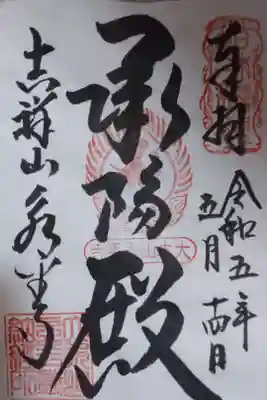 奉拝
令和五年
五月十四日
承陽殿
吉祥山永平寺